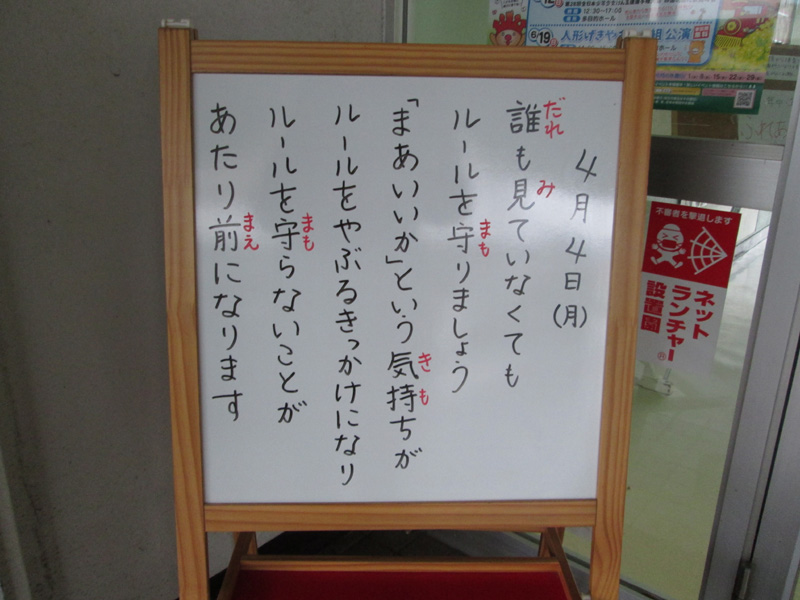 4月4日(月)
誰も見ていなくても
だれ
み
ルールを守りましょう
まも
「まあいいか」という気持ちが
きも
ルールをやぶるきっかけになり
ルールを守らないことが
まも
あたり前になります
まえ
12:30~17:00
6/19
人形げき
公演
不審者を撃退します
ネット
ランチャー
設置園